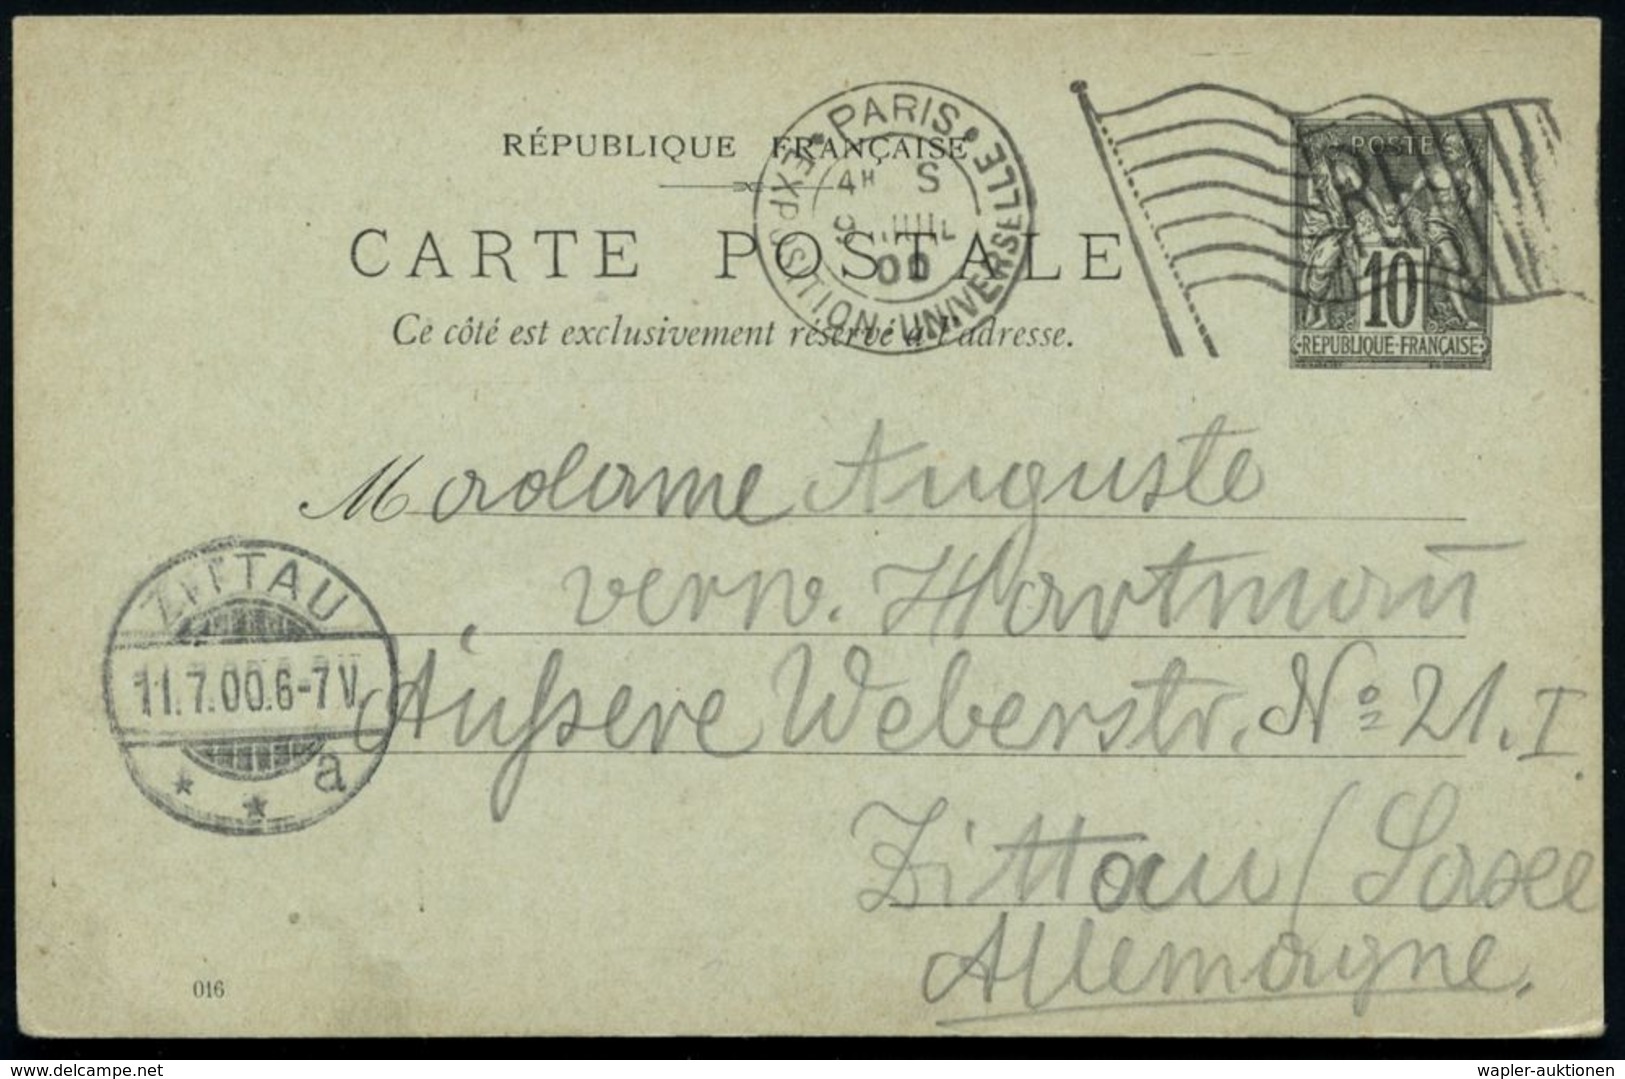 RÉPUBLIQUE FRANÇAISE
CARTE POSTALE
Ce côté est exclusivement réservé à l'adresse.
PARIS
EXPOSITION UNIVERSELLE
4H S
9 JUIL
00
RF
POSTES
10
REPUBLIQUE·FRANÇAISE
Madame Auguste
verw. Hartmañ
Äußere Weberstr. No 21. I
Zittau (Saxe
Allemagne.
ZITTAU
11.7.00.6-7V.
* * a
016
wapler-auktionen
delcampe.net